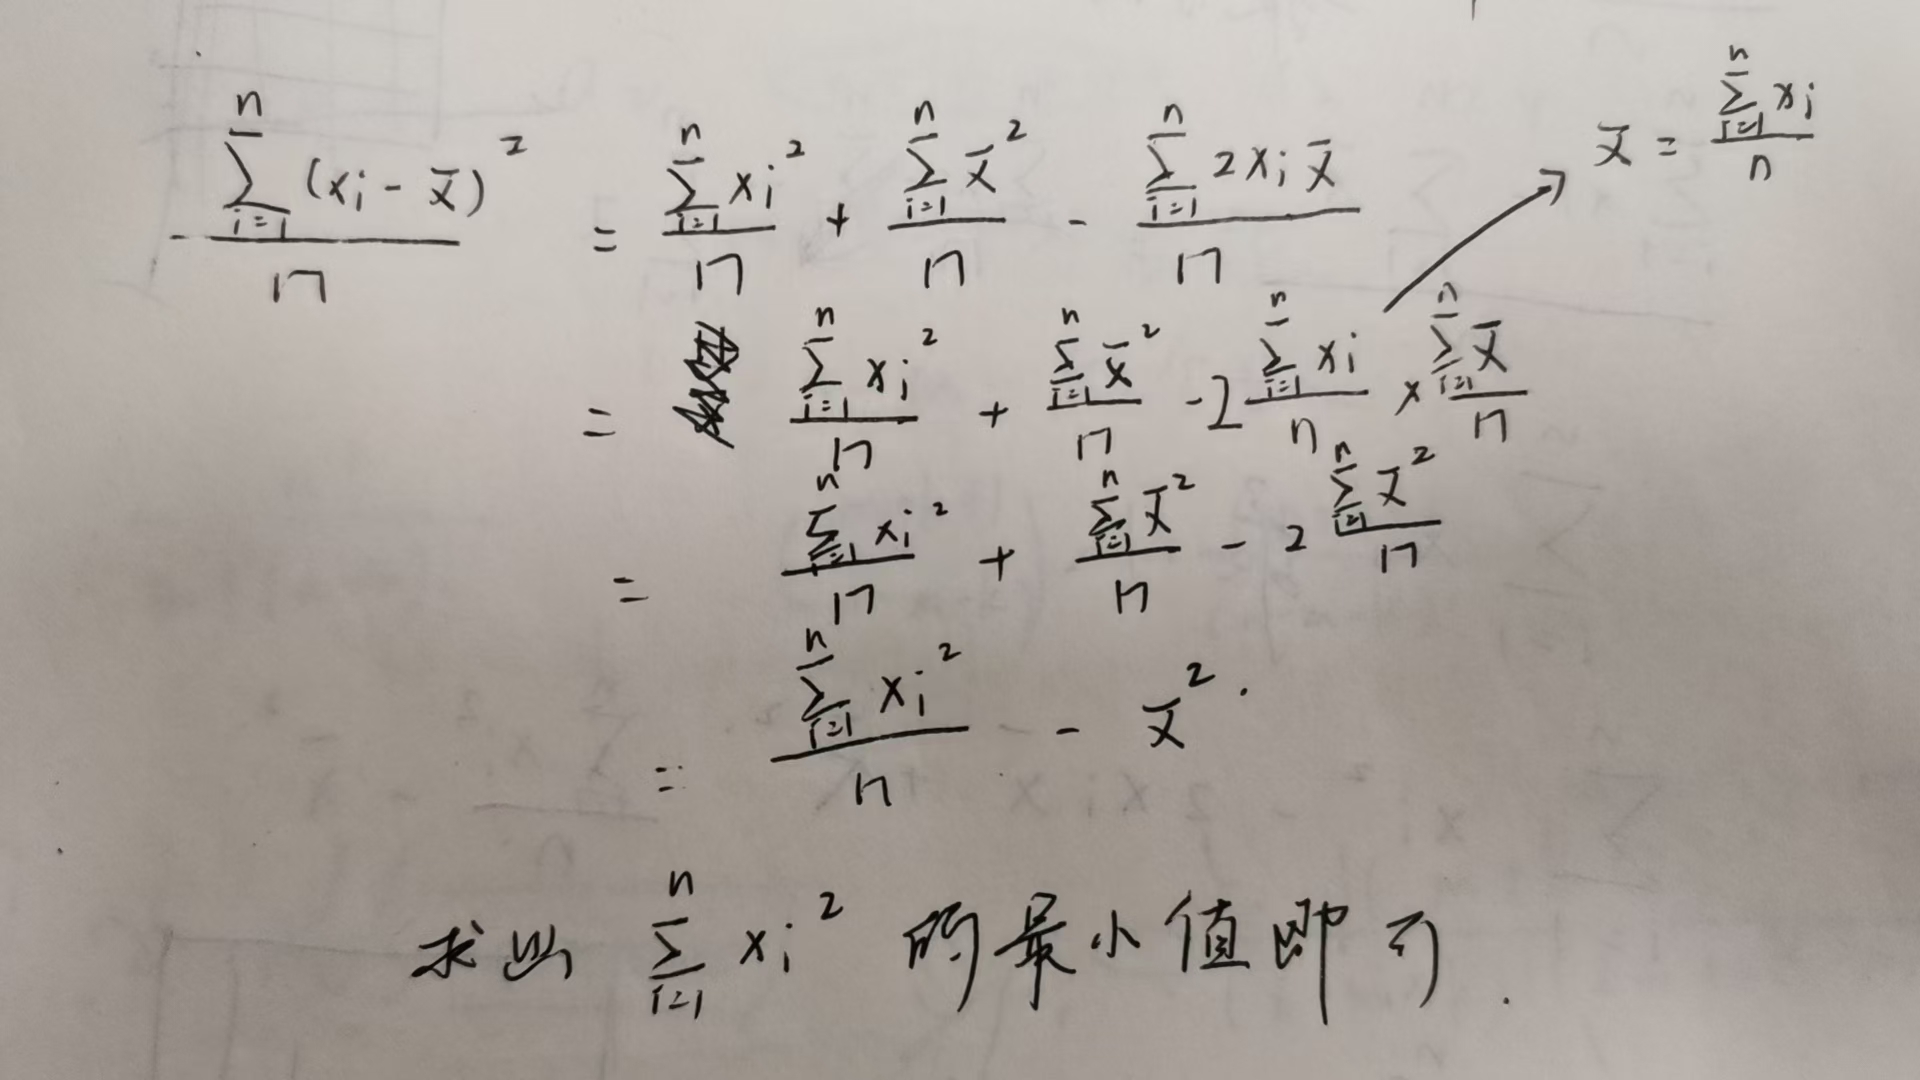 x̄ = \frac{\sum_{i=1}^{n} x_i}{n}
\frac{\sum_{i=1}^{n} (x_i - x̄)^2}{n} = \frac{\sum_{i=1}^{n} x_i^2}{n} + \frac{\sum_{i=1}^{n} x̄^2}{n} - \frac{\sum_{i=1}^{n} 2x_i x̄}{n}
= \frac{\sum_{i=1}^{n} x_i^2}{n} + \frac{\sum_{i=1}^{n} x̄^2}{n} - 2\frac{\sum_{i=1}^{n} x_i}{n} × \frac{\sum_{i=1}^{n} x̄}{n}
= \frac{\sum_{i=1}^{n} x_i^2}{n} + \frac{\sum_{i=1}^{n} x̄^2}{n} - 2\frac{\sum_{i=1}^{n} x̄^2}{n}
= \frac{\sum_{i=1}^{n} x_i^2}{n} - x̄^2.
求出 \sum_{i=1}^{n} x_i^2 的最小值即可.